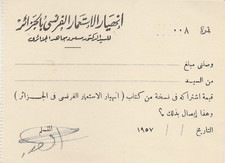 انهيار الاستعمار الفرنسي بالجزائر
للسيد الدكتور سعود مجاهد الجزائري
نمرة ٠٠٨
وصلني مبلغ
من السيد
قيمة اشتراكه في نسخة من كتاب ( انهيار الاستعمار الفرنسي في الجزائر )
وهذا إيصال بذلك ،
التاريخ / / ١٩٥٧